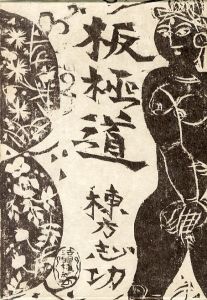 板極道
棟方志功